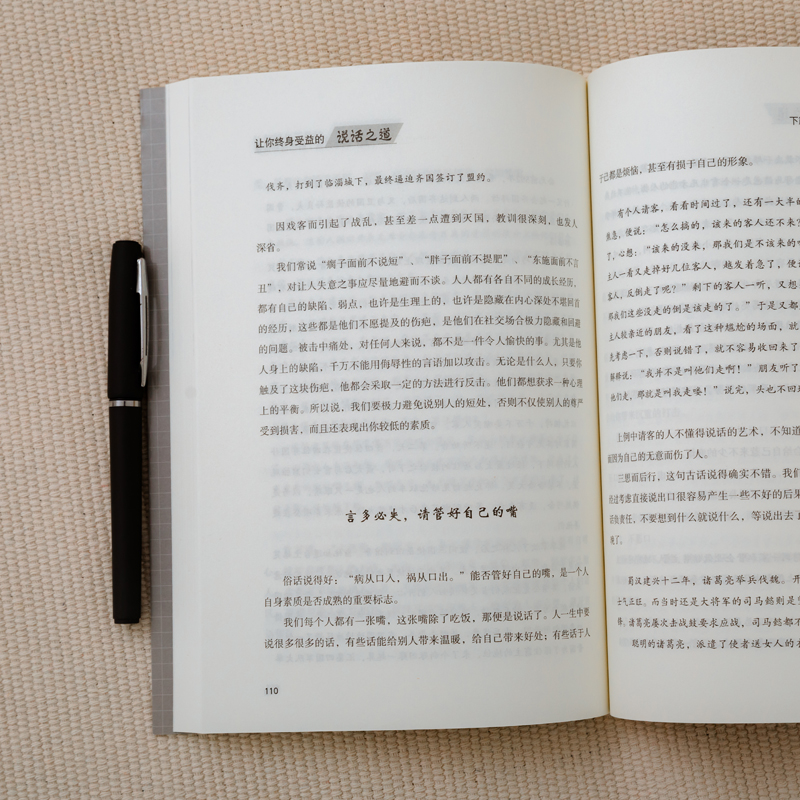 让你终身受益的 说话之道
伐齐，打到了临淄城下，最终逼迫齐国签订了盟约。
因戏客而引起了战乱，甚至差一点遭到灭国，教训很深刻，也发人
深省。
我们常说“瘸子面前不说短”、“胖子面前不提肥”、“东施面前不言
丑”，对让人失意之事应尽量地避而不谈。人人都有各自不同的成长经历，
都有自己的缺陷、弱点，也许是生理上的，也许是隐藏在内心深处不堪回首
的经历，这些都是他们不愿提及的伤疤，是他们在社交场合极力隐藏和回避
的问题。被击中痛处，对任何人来说，都不是一件令人愉快的事。尤其是他
人身上的缺陷，千万不能用侮辱性的言语加以攻击。无论是什么人，只要你
触及了这块伤疤，他都会采取一定的方法进行反击。他们都想获求一种心理
上的平衡。所以说，我们要极力避免说别人的短处，否则不仅使别人的尊严
受到损害，而且还表现出你较低的素质。
言多必失，请管好自己的嘴
俗话说得好：“病从口入，祸从口出。”能否管好自己的嘴，是一个人
自身素质是否成熟的重要标志。
我们每个人都有一张嘴，这张嘴除了吃饭，那便是说话了。人一生中要
说很多很多的话，有些话能给别人带来温暖，给自己带来好处；有些话于人
110
于己都是烦恼，甚至有损于自己的形象。
有个人请客，看看时间过了，还有一大半的
焦急，便说：“怎么搞的，该来的客人还不来？
了，心想：“该来的没来，那我们是不该来的
主人一看又走掉好几位客人，越发着急了，便
客人，反倒走了呢？”剩下的客人一听，又想
那我们这些没走的倒是该走的了。”于是又都
主人较亲近的朋友，看了这种尴尬的场面，就
先考虑一下，否则说错了，就不容易收回来了
解释说：“我并不是叫他们走啊！”朋友听了
他们走，那就是叫我走喽！”说完，头也不回
上例中请客的人不懂得说话的艺术，不知道
而因为自己的无意而伤了人。
三思而后行，这句古话说得确实不错。我们
经过考虑直接说出口很容易产生一些不好的后果
话负责任，不要想到什么就说什么，等说出去
晚了。
蜀汉建兴十二年，诸葛亮举兵伐魏。开
士气正旺。而当时还是大将军的司马懿则是
锋。诸葛亮屡次击战鼓要求应战，司马懿都不
聪明的诸葛亮，派遣了使者送女人的